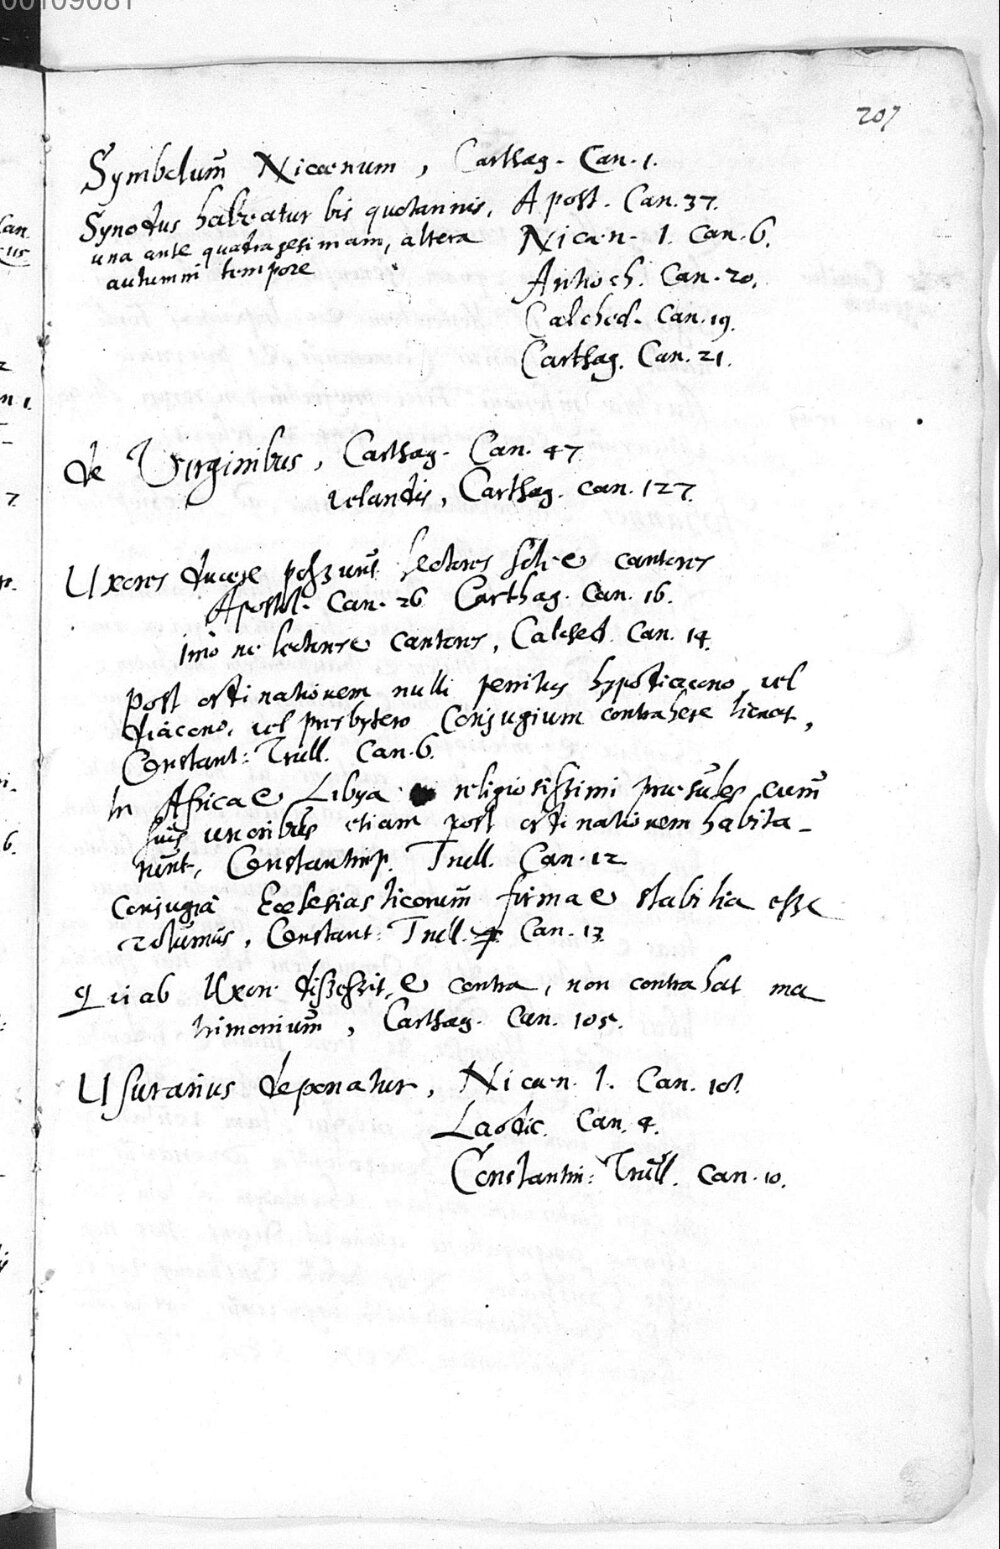 00109081
207
Symbolum Nicænum, Carthag. Can. 1.
Synodus habeatur bis quotannis, Apost. Can. 37.
una ante quadragesimam, altera Nicæn. 1. Can. 6.
autumni tempore
Antioch. Can. 20.
Calched. Can. 19.
Carthag. Can. 21.
de Virginibus, Carthag. Can. 47
velandis, Carthag. Can. 127.
Uxores ducere possunt lectores soli e cantores
Apostol. Can. 26 Carthag. Can. 16.
imo ne lectores e cantores, Calched. Can. 14.
post ordinationem nulli penitus hypodiacono, vel
diacono, vel presbytero Conjugium contrahere liceat,
Constant: Trull. Can. 6.
In Africa e Libya religiosissimi præsules, cum
suis uxoribus etiam post ordinationem habita-
runt, Constantinop. Trull. Can. 12
Conjugia Ecclesiasticorum firma e stabilia esse
volumus, Constant: Trull. Can. 13
Qui ab Uxore discessit, e contra, non contrahat ma
trimonium, Carthag. Can. 105.
Usurarius deponatur, Nicæn. 1. Can.
Laodic. Can. 4.
Constantin: Trull. Can. 10.